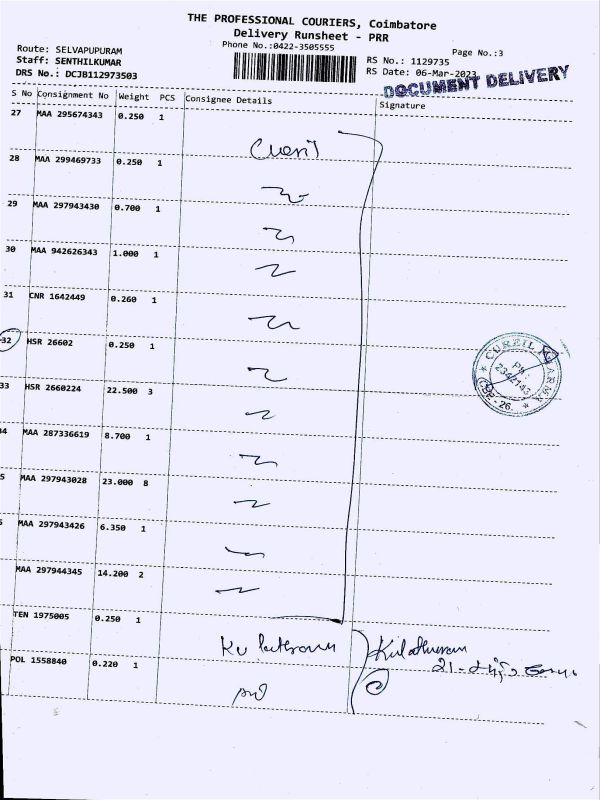 THE PROFESSIONAL COURIERS, Coimbatore
Delivery Runsheet - PRR
Phone No.:0422-3505555
Page No.:3
Route: SELVAPUPURAM
Staff: SENTHILKUMAR
DRS No.: DCJB112973503
RS No.: 1129735
RS Date: 06-Mar-2023
DOCUMENT DELIVERY
S No Consignment No Weight PCS Consignee Details Signature
27 MAA 295674343 0.250 1
28 MAA 299469733 0.250 1
29 MAA 297943430 0.700 1
30 MAA 942626343 1.000 1
31 CNR 1642449 0.260 1
32 HSR 26602 0.250 1
33 HSR 2660224 22.500 3
CUREIL PHARMA
PH: 2342143
CBE - 26.
4 MAA 287336619 8.700 1
5 MAA 297943028 23.000 8
MAA 297943426 6.350 1
MAA 297944345 14.200 2
TEN 1975005 0.250 1
POL 1558840 0.220 1